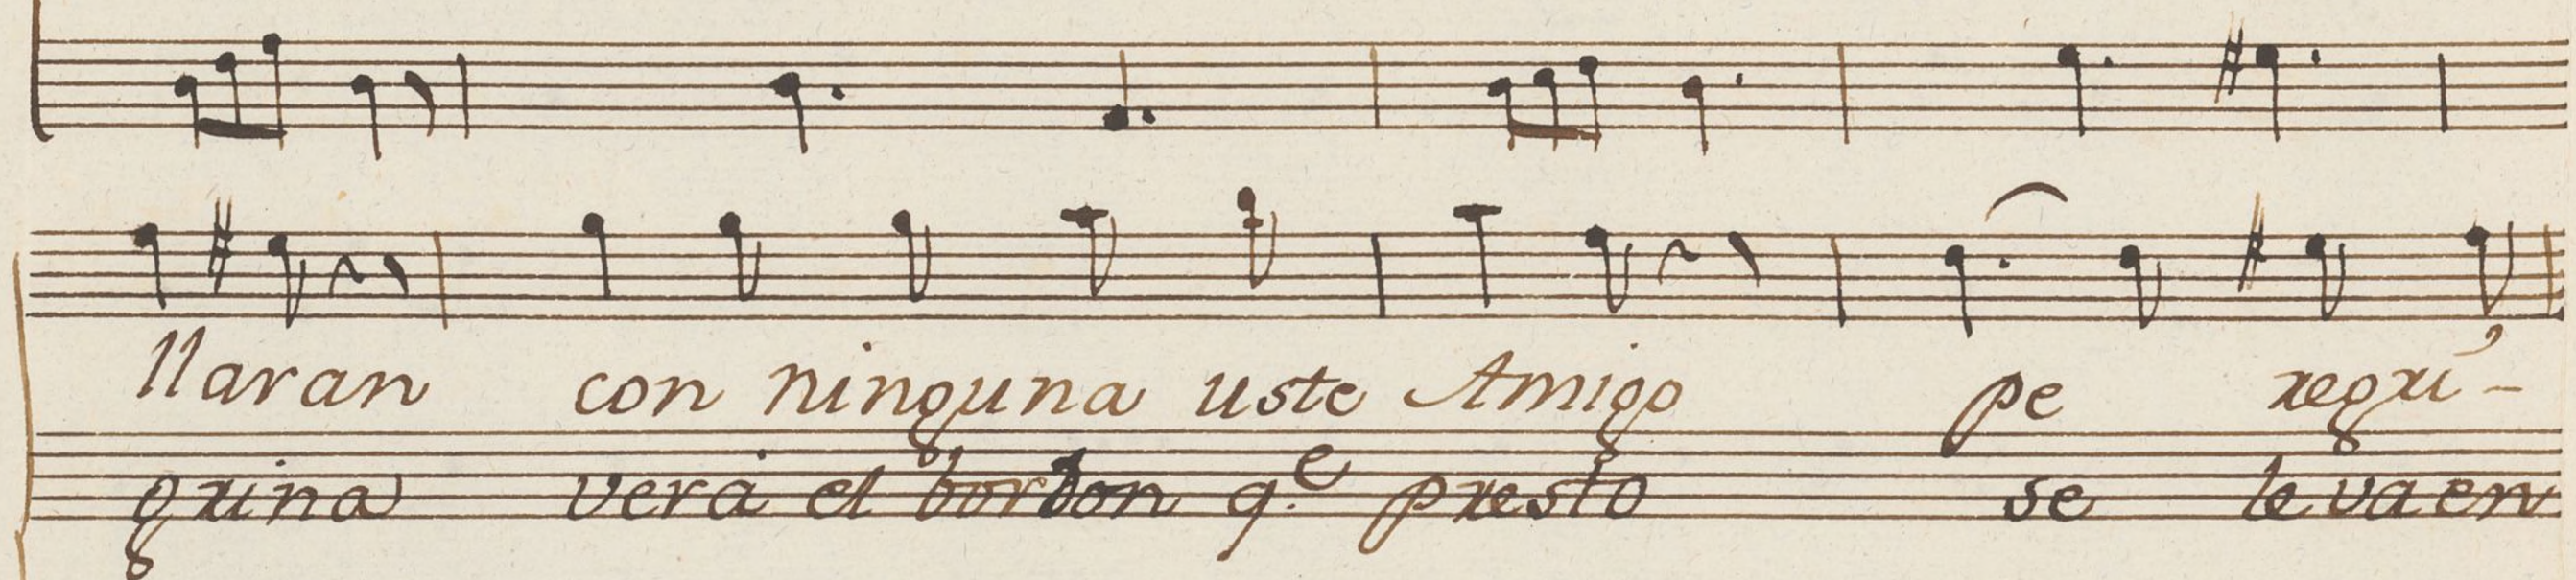 llaran con ninguna uste Amigo pe regri-
grina verá el bordon q.e presto se le va en